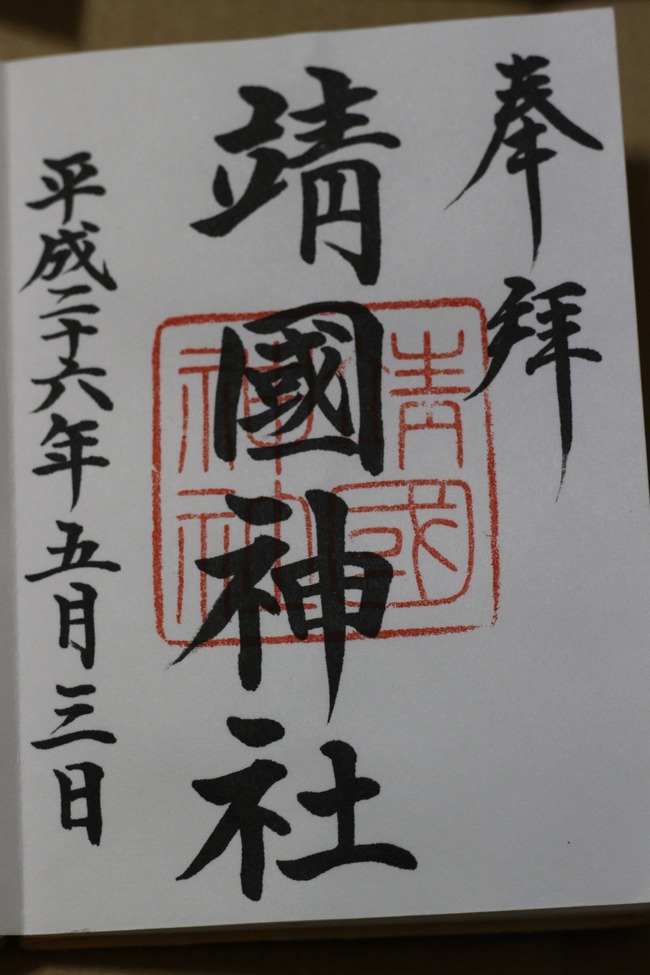 奉拝
靖國神社
靖國神社
平成二十六年五月三日